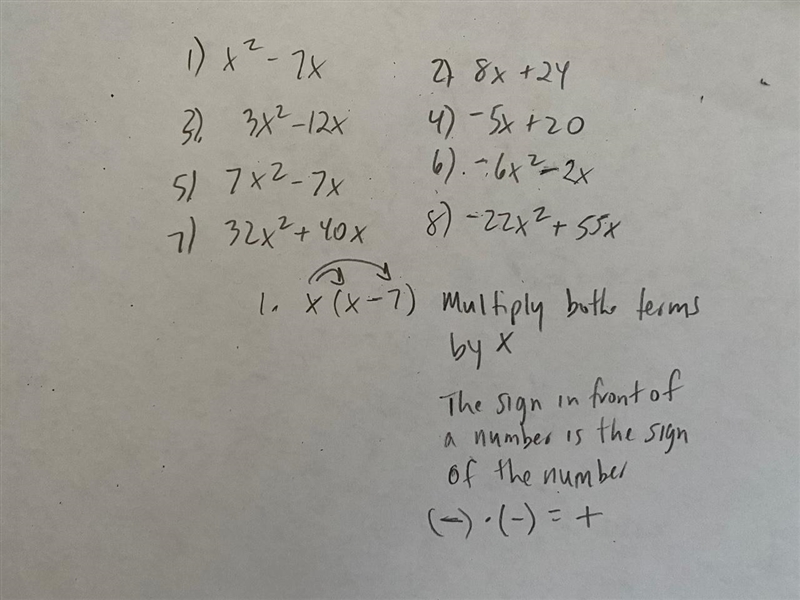 1) x² - 7x
2) 8x + 24
3) 3x² - 12x
4) -5x + 20
5) 7x² - 7x
6) -6x² - 2x
7) 32x² + 40x
8) -22x² + 55x
1. x(x - 7) Multiply both terms
by x
The sign in front of
a number is the sign
of the number
(-) · (-) = +